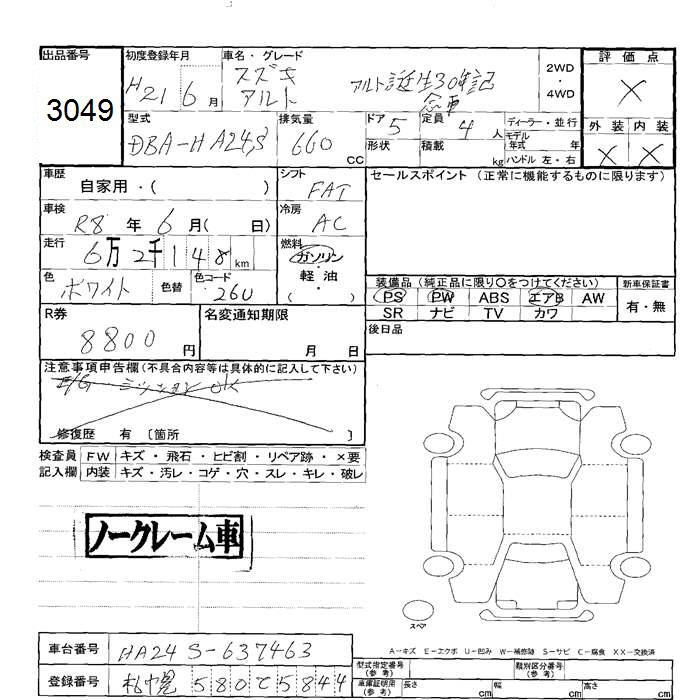 出品番号 初度登録年月 車名・グレード 評価点
3049 H21 6月 スズキ アルト アルト誕生30年記念車 2WD・4WD X
型式 排気量 ドア 5 定員 4人 ディーラー・並行 外装 内装
DBA-HA24S 660 cc 形状 積載 kg モデル年式 年 ハンドル 左・右 X X
車歴 自家用・( ) シフト FAT セールスポイント (正常に機能するものに限ります)
車検 R8年 6月( 日) 冷房 AC
走行 6万2千148km 燃料 ガソリン・軽油・( )
色 ホワイト 色替 色コード 26U 装備品 (純正品に限り○をつけてください) 新車保証書
PS PW ABS エアB AW 有・無
SR ナビ TV カワ
R券 8800円 名変通知期限 月 日 後日品
注意事項申告欄(不具合内容等は具体的に記入して下さい)
E/G ミッション OK
修復歴 有 〔箇所 〕
検査員 FW キズ・飛石・ヒビ割・リペア跡・×要
記入欄 内装 キズ・汚レ・コゲ・穴・スレ・キレ・破レ
ノークレーム車
スペア
A-キズ E-エクボ U-凹み W-補修跡 S-サビ C-腐食 XX-交換済
車台番号 HA24S-637463 型式指定番号(参考) 類別区分番号(参考)
登録番号 札幌 580 て 5844 車庫証明用(参考) 長さ cm 幅 cm 高さ cm